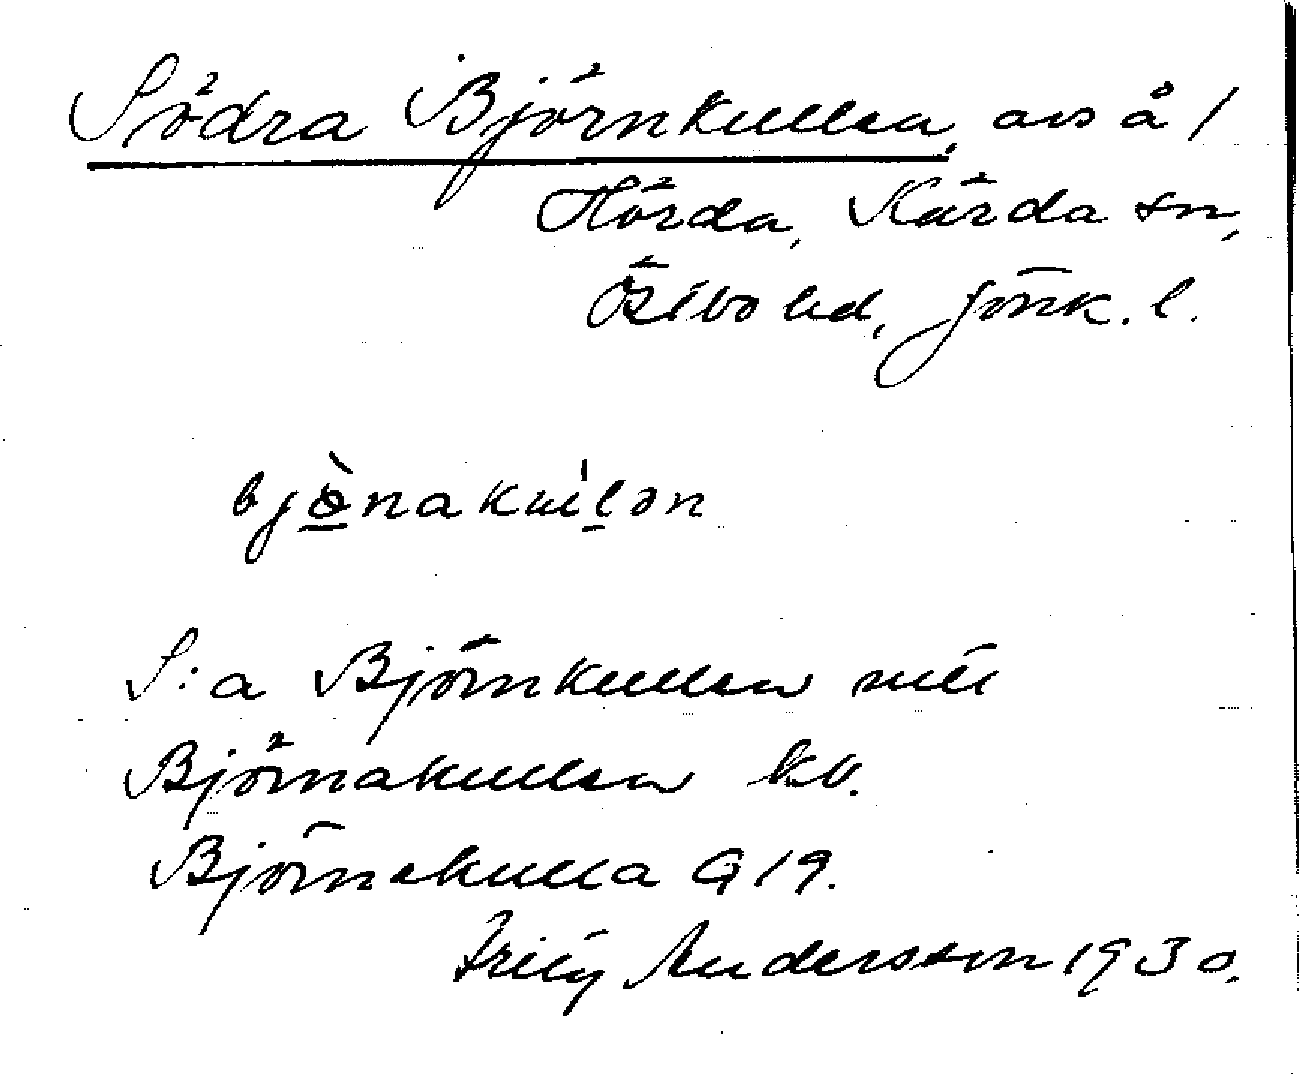 Södra Björnkullen, avs å 1
Hörda, Kärda sn,
Östbo hd, Jönk. l.
bjø̀nakulən
S:a Björnkullen
Björnakullen kv.
Björnekulla G 19.
Andersson 1930.